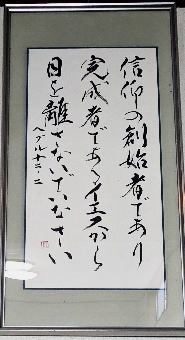 信仰の創始者であり
完成者であるイエスから
目を離さないでいなさい
ヘブル十二・二